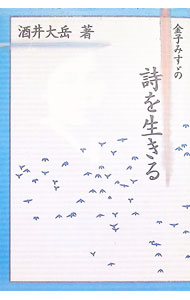 金子みすゞの
詩を生きる
酒井大岳 著